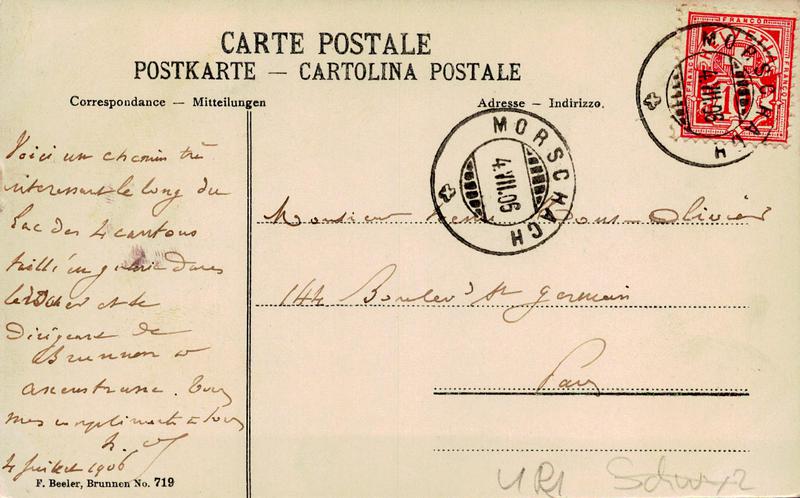 CARTE POSTALE
POSTKARTE — CARTOLINA POSTALE
Correspondance — Mitteilungen
Adresse — Indirizzo.
FRANCO
10
MORSCHACH
4.VII.06
MORSCHACH
4.VII.06
Voici un chemin trè
interessant le long du
Lac des 4 cantons
taillé en galerie dans
le rocher et se
dirigeant de
Brunnen
axenstrasse. Tous
mes compliments à tous
4 juillet 1906
Monsieur Olivier
144 Boulevd St germain
Paris
F. Beeler, Brunnen No. 719
URI Schwyz